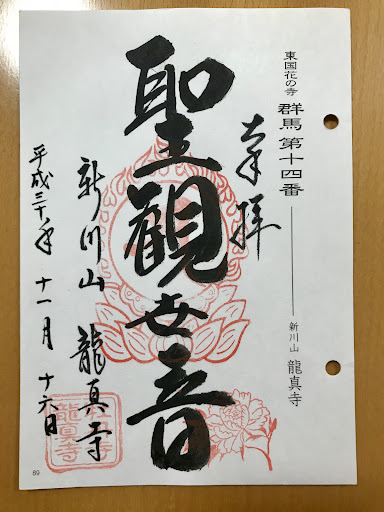 東国花の寺 群馬 第十四番 新川山 龍真寺
奉拝
聖観世音
新川山 龍真寺
平成三十年 十一月 十六日
龍真寺
89